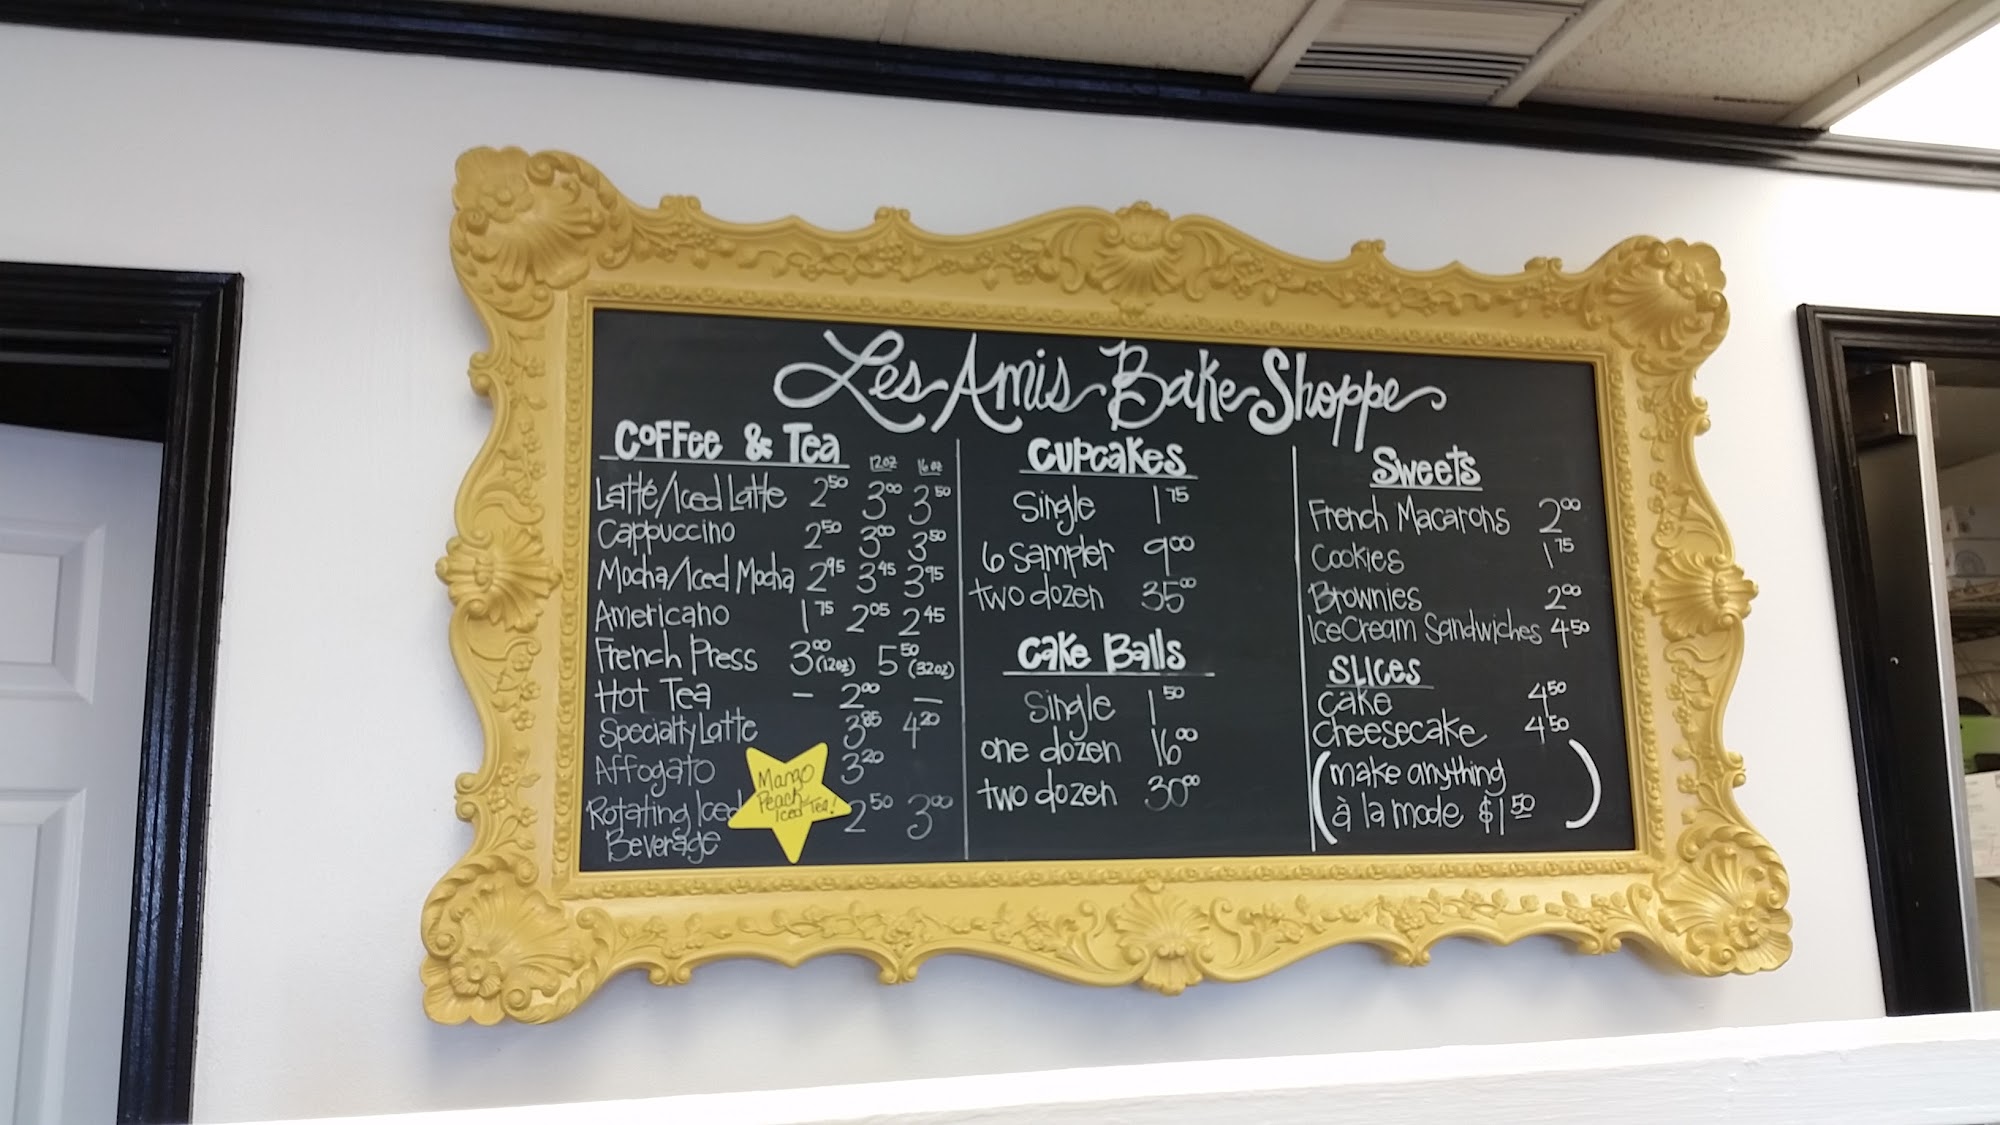 Les Amis Bake Shoppe
Coffee & Tea
12oz 16oz
Latté/Iced Latte 2.50 3.00 3.50
Cappuccino 2.50 3.00 3.50
Mocha/Iced Mocha 2.95 3.45 3.95
Americano 1.75 2.05 2.45
French Press 3.00 (12oz) 5.50 (32oz)
Hot Tea – 2.00 –
Specialty Latte 3.85 4.20
Affogato 3.20
Rotating Iced 2.50 3.00
Beverage
Mango
Peach
Iced Tea!
Cupcakes
Single 1.75
6 Sampler 9.00
two dozen 35.00
Cake Balls
Single 1.50
one dozen 16.00
two dozen 30.00
Sweets
French Macarons 2.00
Cookies 1.75
Brownies 2.00
Ice Cream Sandwiches 4.50
Slices
Cake 4.50
Cheesecake 4.50
(make anything
à la mode $1.50)